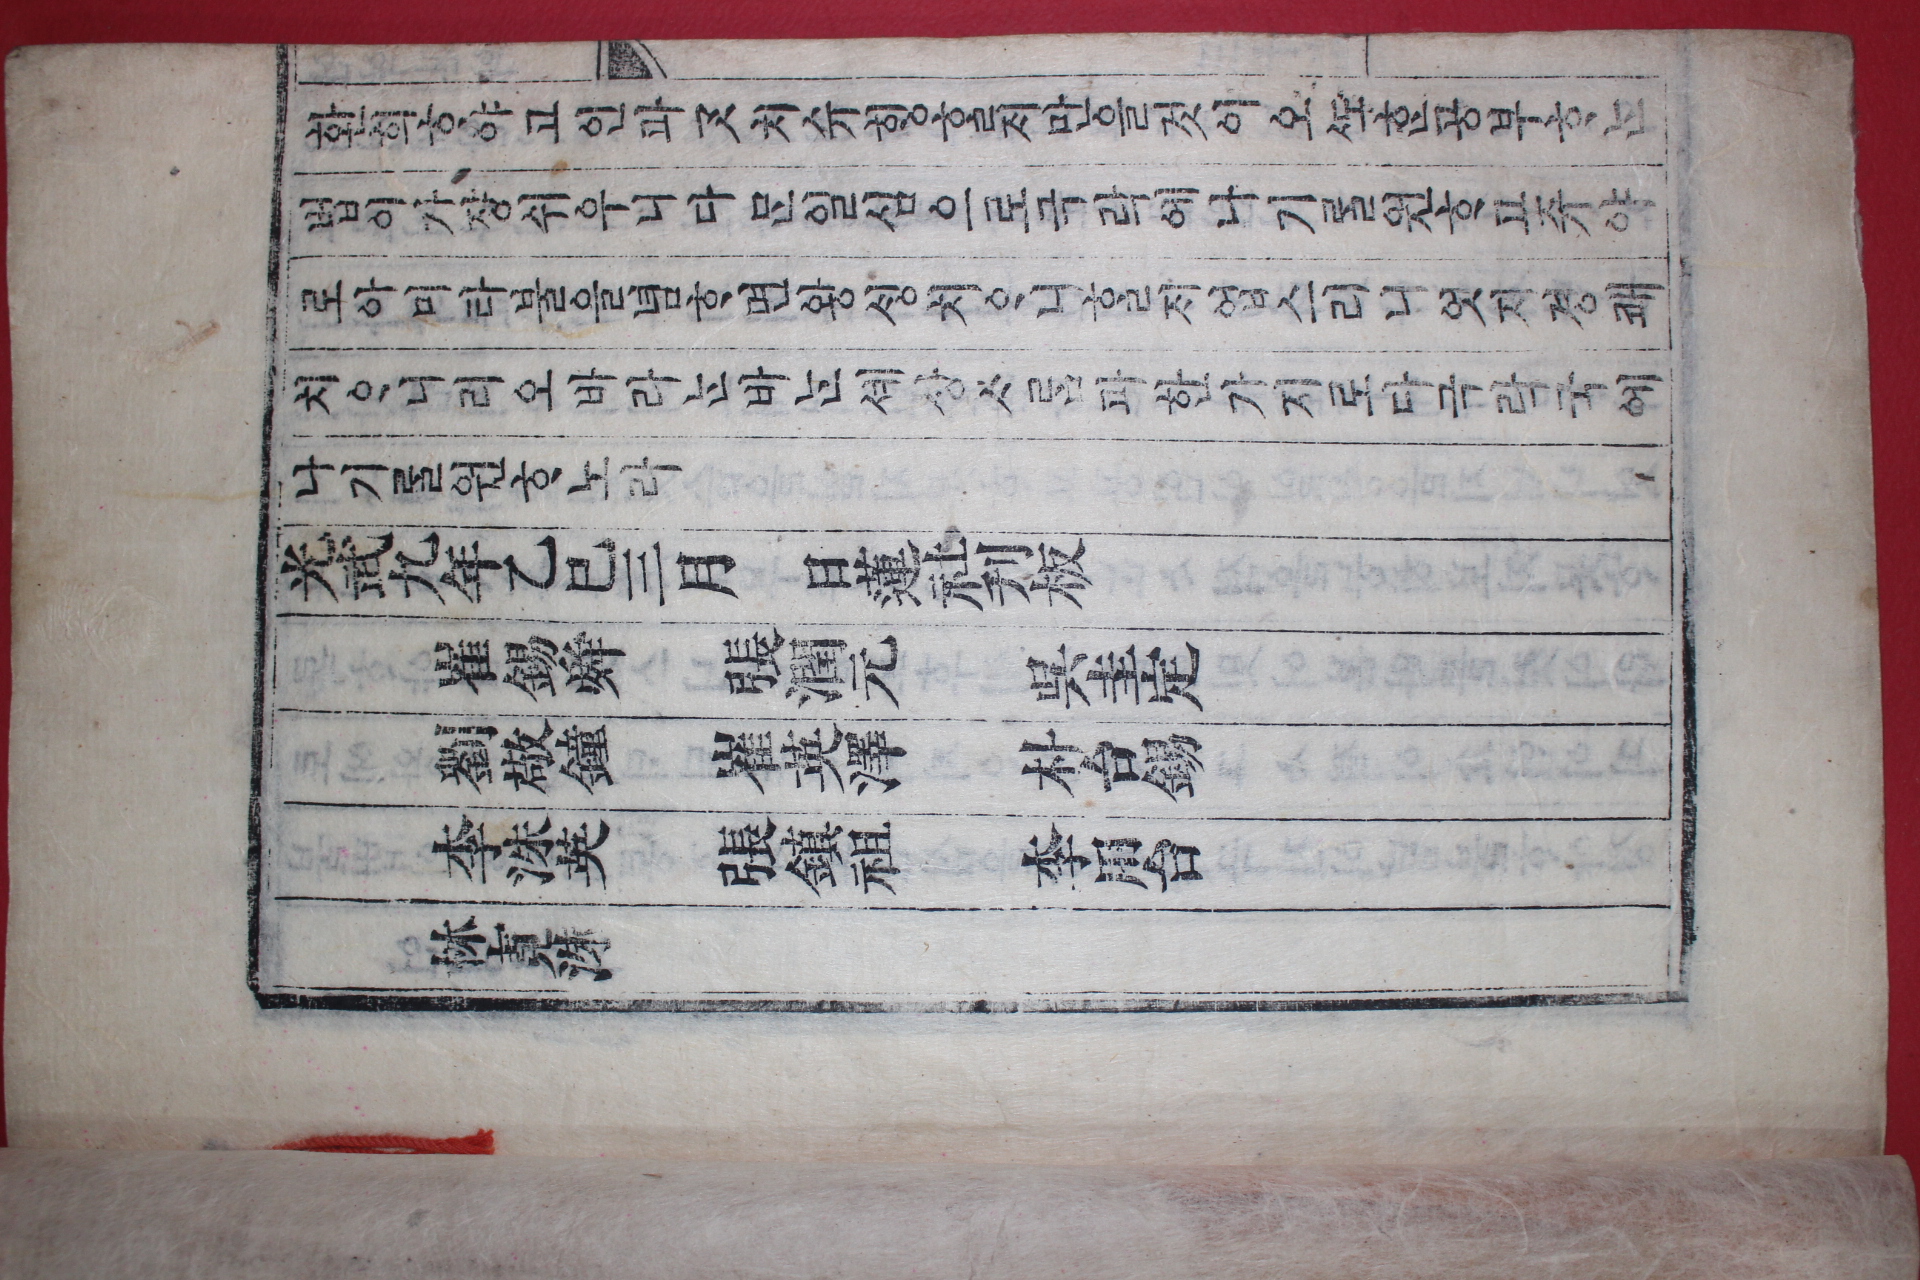 환희ᄒᆞ야고인과ᄀᆞᆺ치슈ᄒᆡᆼᄒᆞᆯ지만을것이오ᄯᅩᄒᆞᆫ공부ᄒᆞᄂᆞᆫ
법이가쟝쉬우니다ᄆᆞᆫ일심으로극락에나기ᄅᆞᆯ원ᄒᆞ고쥬야
로아미타불을념ᄒᆞ면왕ᄉᆡᆼ치ᄋᆞ니ᄒᆞᆯ지업스리니엇지경쾌
치ᄋᆞ니리오바라ᄂᆞᆫ바ᄂᆞᆫ셰상ᄉᆞᄅᆞᆷ과한가지로다극락국에
나기ᄅᆞᆯ원ᄒᆞ노라
光武九年乙巳三月 日蓮社刊板
崔錫舜 張潤元 吳圭定
劉敬鐘 崔英澤 朴台錫
李洙英 張鎮祖 李用台
林寬洙